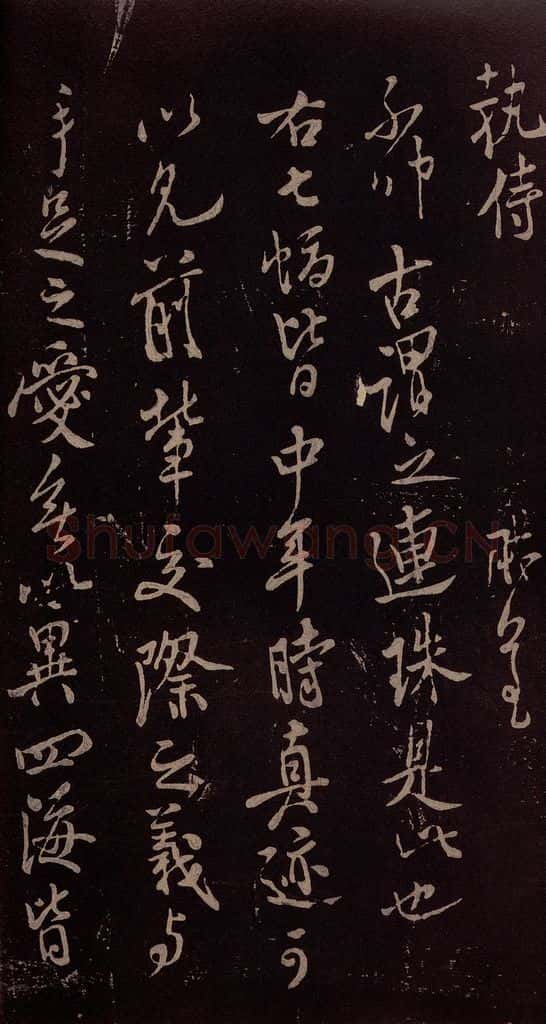 執侍
古謂之連珠是此也
右七幅皆中年時真迹可
以見前輩交際之義与
手足之愛無以異四海皆
Shufawang.CN